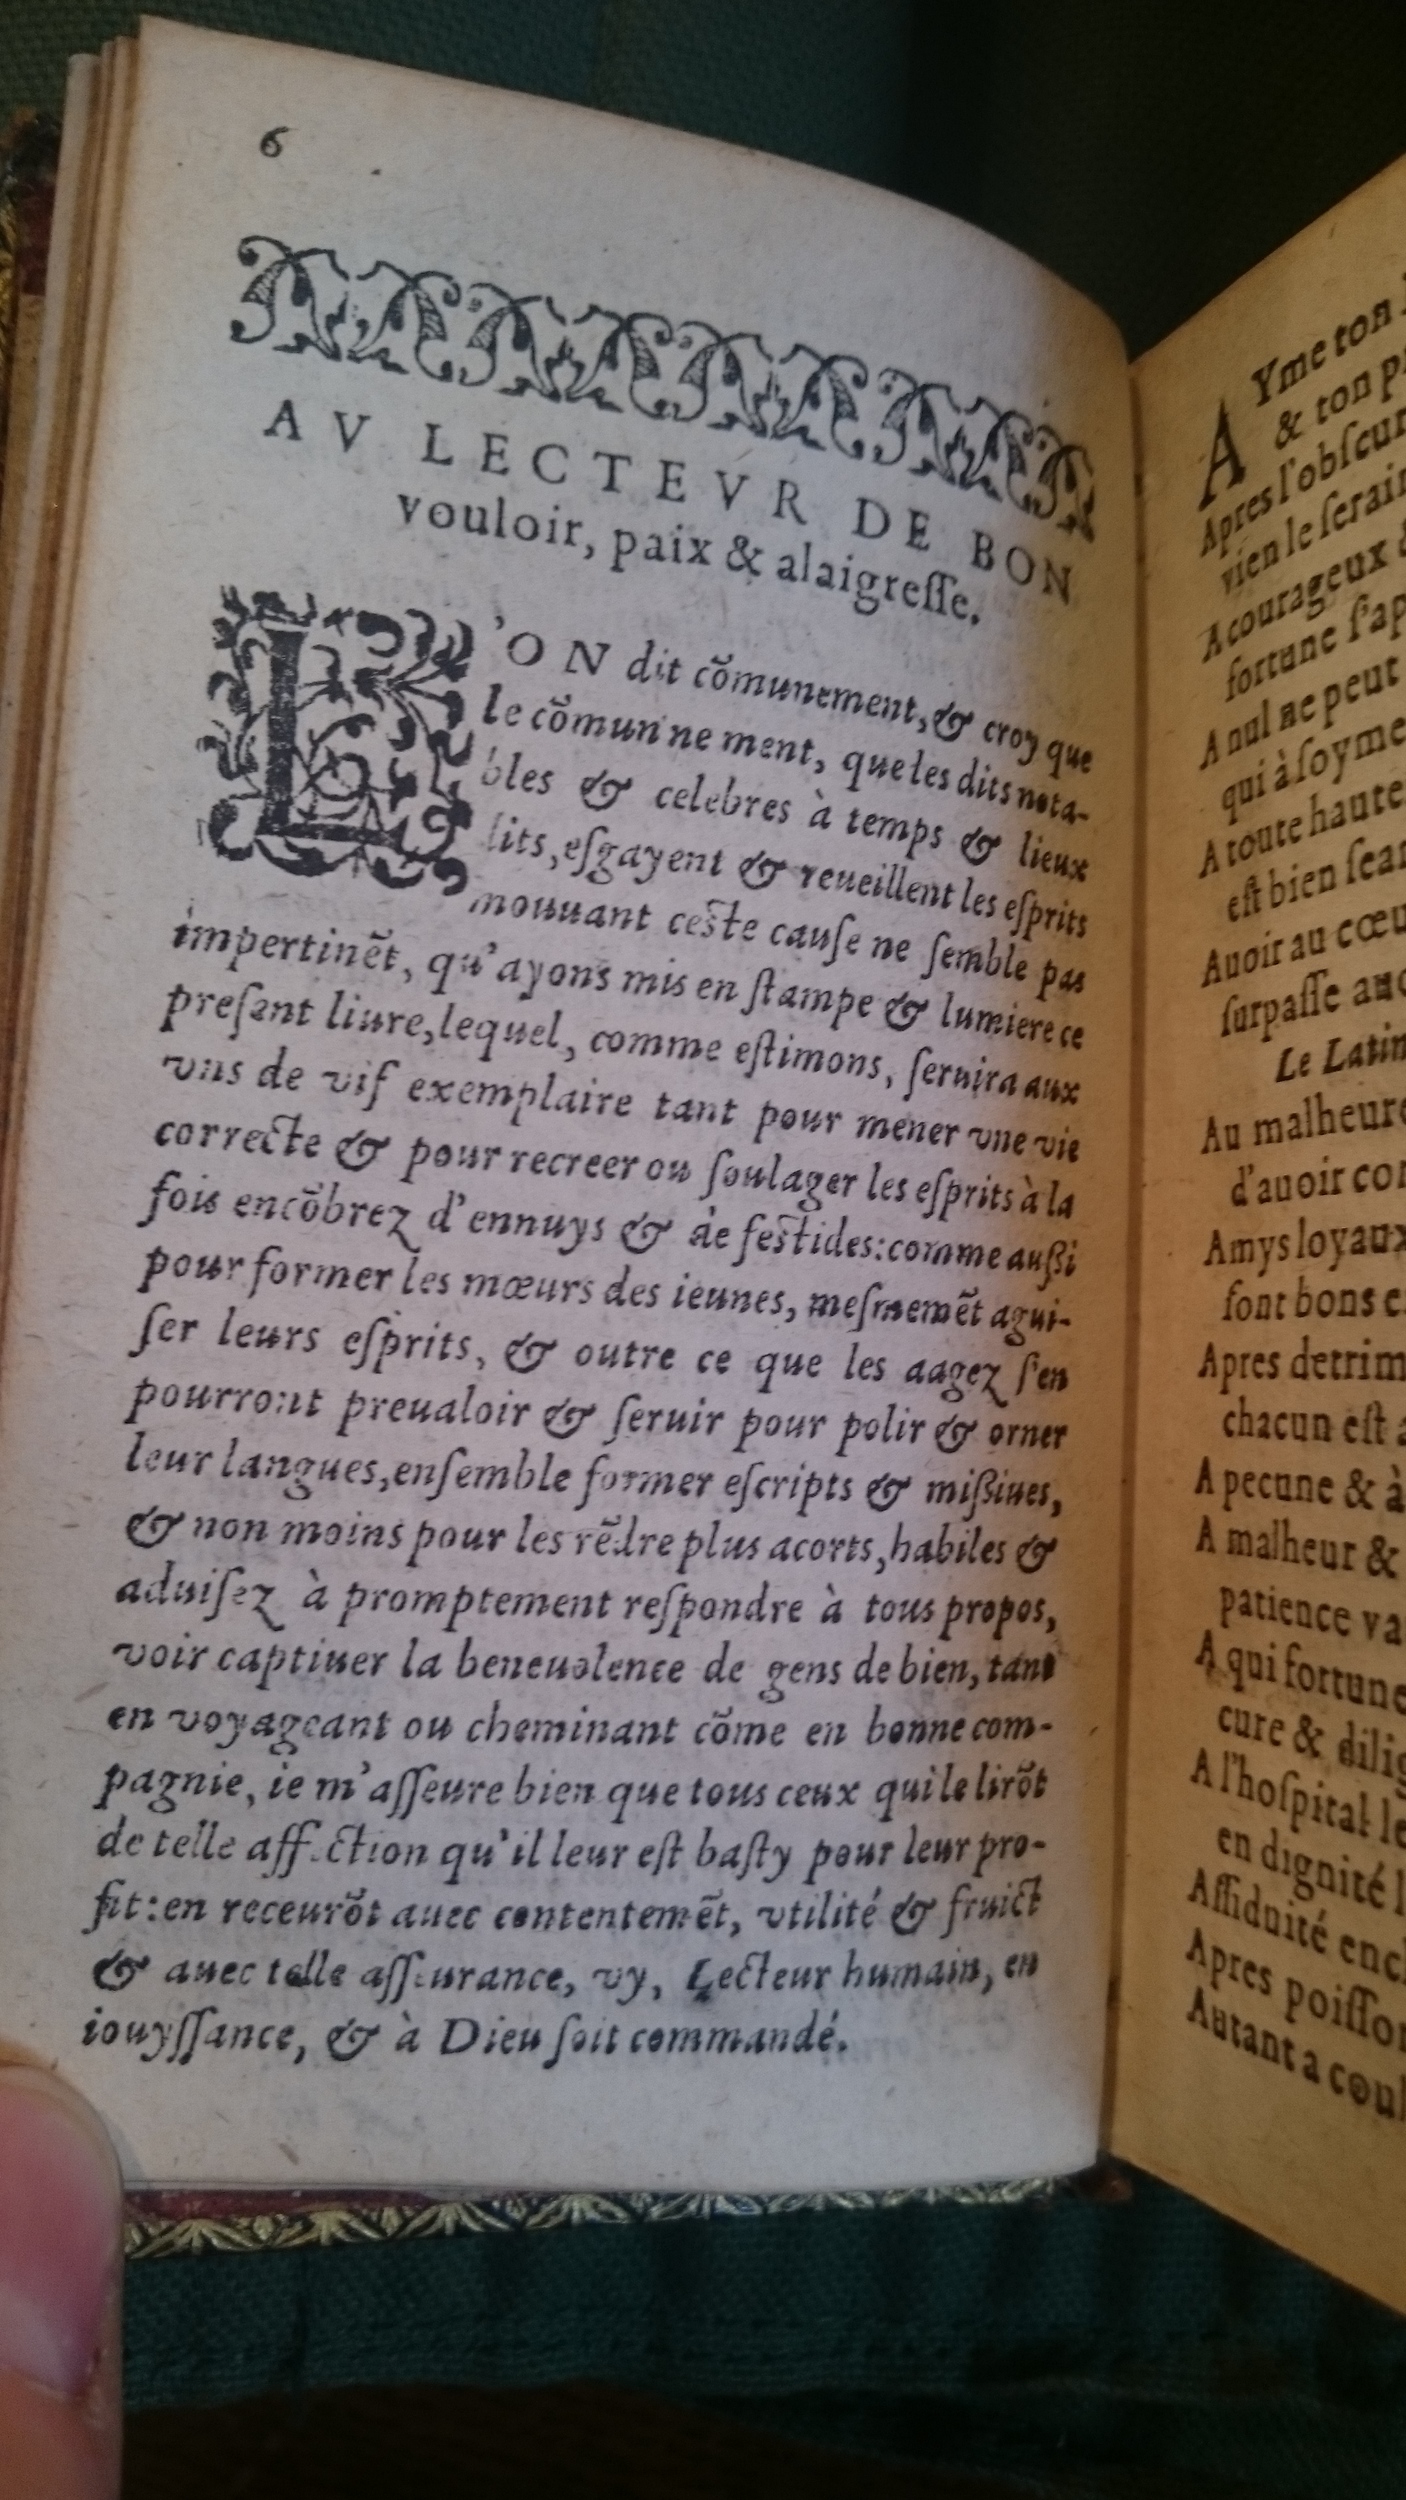 6
AV LECTEVR DE BON
vouloir, paix & alaigreſſe.
L'ON dit cõmunement, & croy que
le cõmun ne ment, que les dits nota-
bles & celebres à temps & lieux
dits, eſgayent & reueillent les eſprits
mouuant ceſte cauſe ne ſemble pas
impertinẽt, qu'ayons mis en ſtampe & lumiere ce
preſent liure, lequel, comme eſtimons, ſeruira aux
vns de vif exemplaire tant pour mener vne vie
correcte & pour recreer ou ſoulager les eſprits à la
fois encõbrez d'ennuys & de feſtides: comme auſſi
pour former les mœurs des ieunes, meſmemẽt agui-
ſer leurs eſprits, & outre ce que les aagez ſ'en
pourront preualoir & ſeruir pour polir & orner
leur langues, enſemble former eſcripts & miſſiues,
& non moins pour les rẽdre plus acorts, habiles &
aduiſez à promptement reſpondre à tous propos,
voir captiuer la beneuolence de gens de bien, tant
en voyageant ou cheminant cõme en bonne com-
pagnie, ie m'aſſeure bien que tous ceux qui le lirõt
de telle affection qu'il leur eſt baſty pour leur pro-
fit: en receurõt auec contentemẽt, vtilité & fruict
& auec telle aſſeurance, vy, Lecteur humain, en
iouyſſance, & à Dieu ſoit commandé.
AYme ton
& ton
Apres l'obſcur
vien le ſerain
A courageux
fortune ſ'ap
A nul ne peut
qui à ſoymeſ
A toute haute
eſt bien ſean
Auoir au cœu
ſurpaſſe
Le Latin
Au malheure
d'auoir con
Amys loyaux
ſont bons e
Apres detrim
chacun eſt
A pecune & à
A malheur &
patience va
A qui fortune
cure & dilig
A l'hoſpital le
en dignité
Aſſiduité enc
Apres poiſſon
Autant a coul